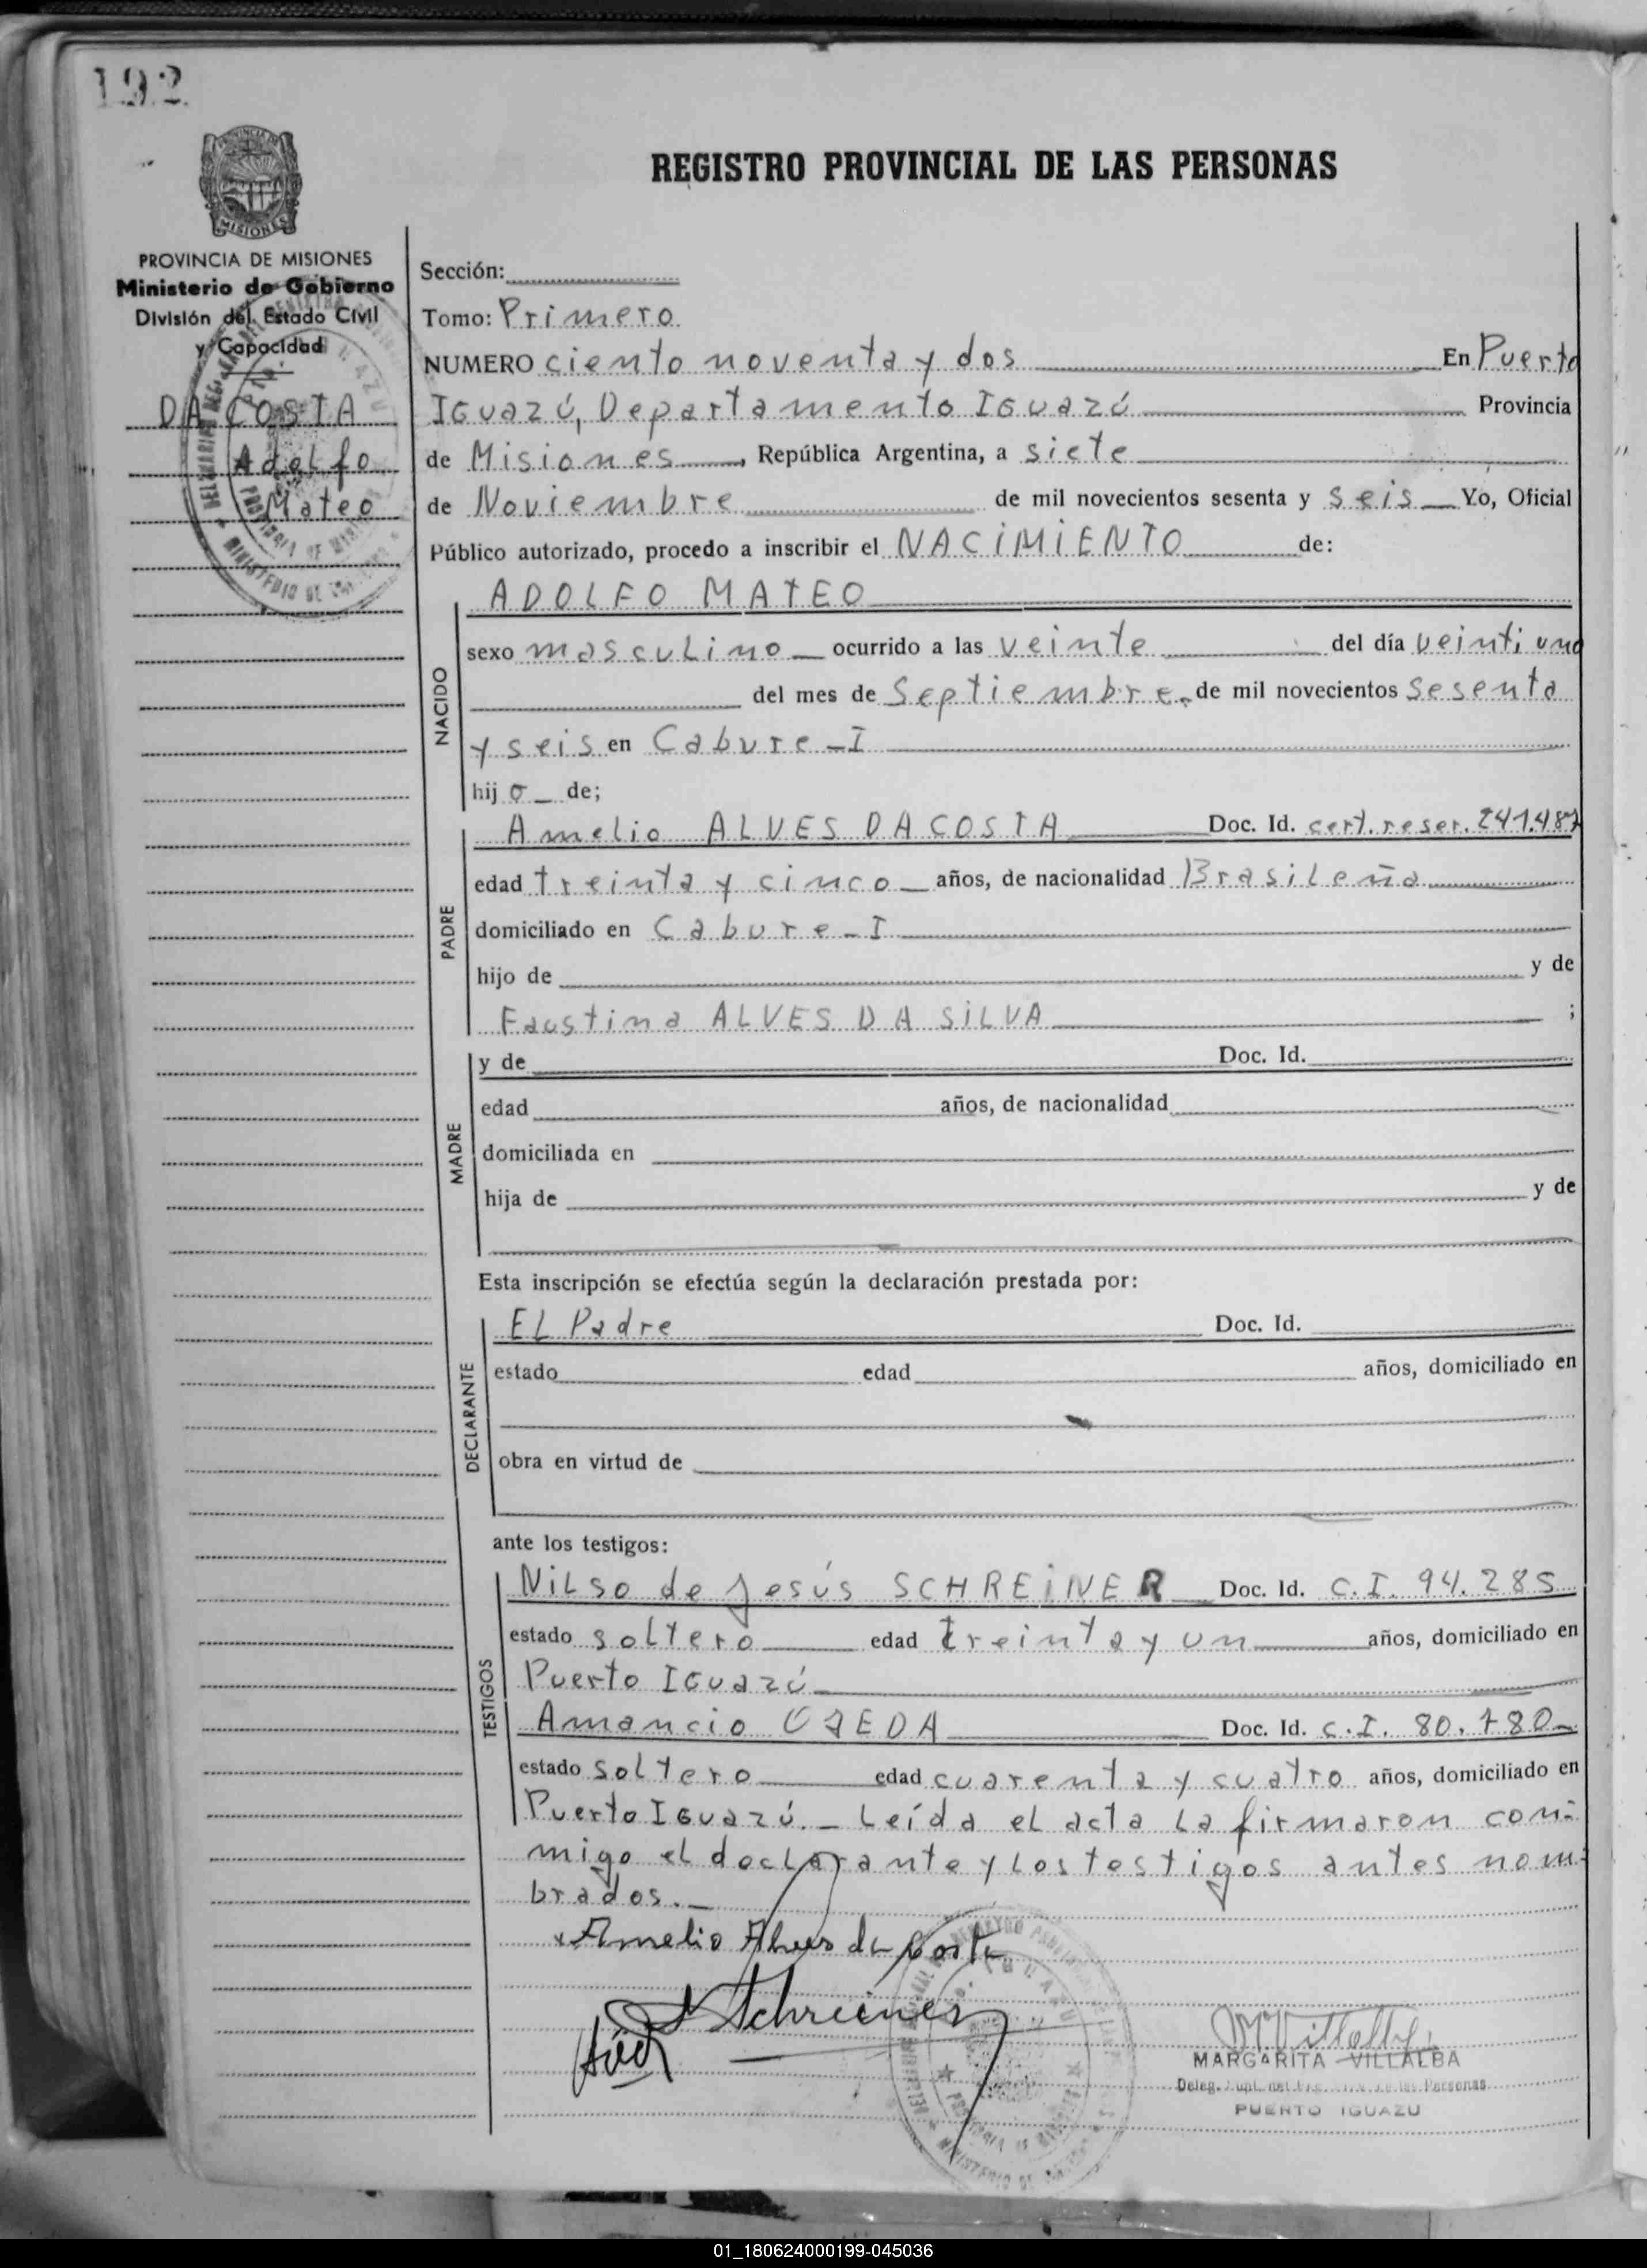 192
PROVINCIA DE MISIONES
Ministerio de Gobierno
División del Estado Civil
y Capacidad
DA COSTA
Adolfo
Mateo
REGISTRO PROVINCIAL DE LAS PERSONAS
Sección:
Tomo: Primero
NUMERO ciento noventa y dos En Puerto
IGuazú, Departamento IGuazú Provincia
de Misiones, República Argentina, a siete
de Noviembre de mil novecientos sesenta y seis Yo, Oficial
Público autorizado, procedo a inscribir el NACIMIENTO de:
NACIDO
ADOLFO MATEO
sexo masculino ocurrido a las veinte del día veintiuno
del mes de Septiembre de mil novecientos sesenta
y seis en Cabure-I
hijo de;
PADRE
Amelio ALVES DACOSTA Doc. Id. cert. reser. 241.487
edad treinta y cinco años, de nacionalidad Brasileña
domiciliado en Cabure-I
hijo de y de
Faustina ALVES DA SILVA ;
MADRE
y de Doc. Id.
edad años, de nacionalidad
domiciliada en
hija de y de
Esta inscripción se efectúa según la declaración prestada por:
DECLARANTE
EL Padre Doc. Id.
estado edad años, domiciliado en
obra en virtud de
ante los testigos:
TESTIGOS
NiLso de Jesús SCHREINER Doc. Id. C.I. 94.285
estado soltero edad treinta y un años, domiciliado en
Puerto IGuazú
Amancio OJEDA Doc. Id. C.I. 80.780
estado soltero edad cuarenta y cuatro años, domiciliado en
Puerto IGuazú. Leída el acta la firmaron con-
migo el declarante y los testigos antes nom-
brados.
x Amelio Alves da Costa
Schreiner
MVillalba
MARGARITA VILLALBA
PUERTO IGUAZU
01_180624000199-045036